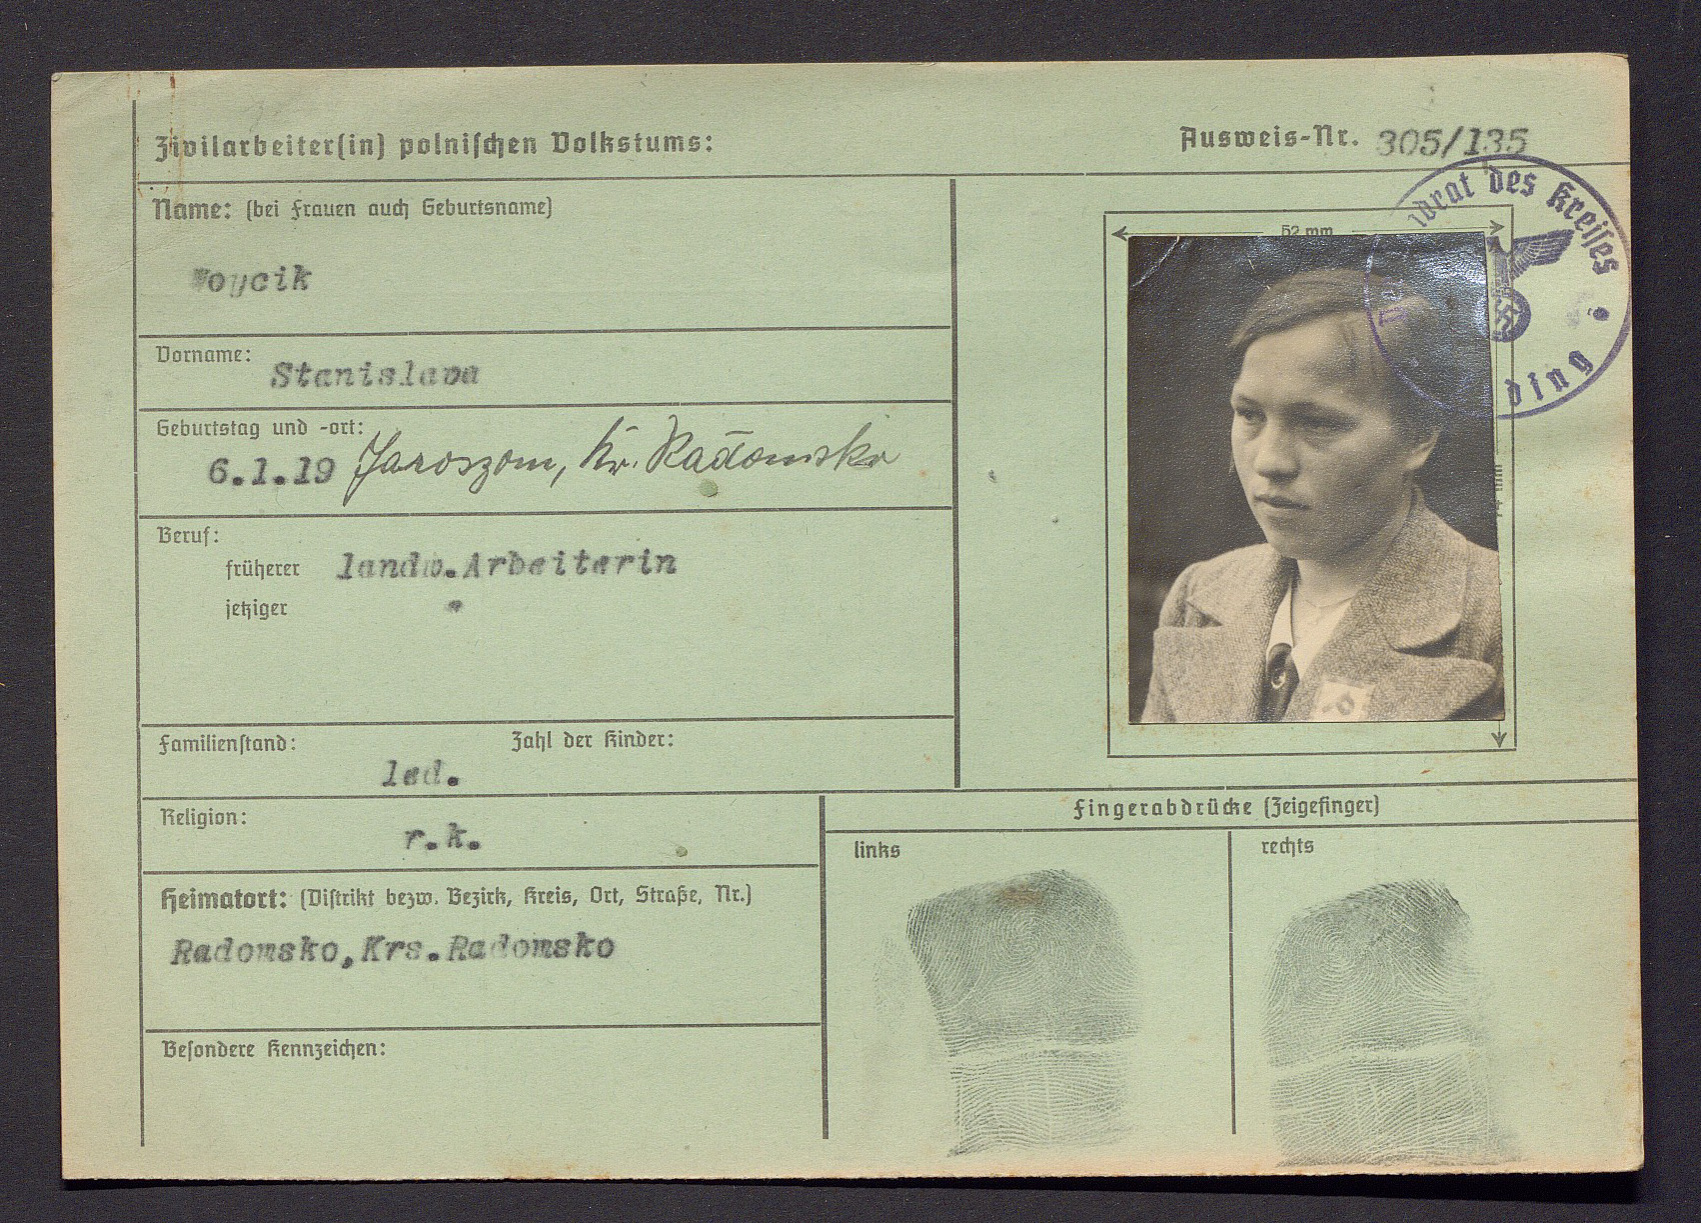 Zivilarbeiter(in) polnischen Volkstums:
Ausweis-Nr. 305/135
Name: (bei Frauen auch Geburtsname)
Woycik
Vorname: Stanislava
Geburtstag und -ort:
6.1.19 Jaroszom, Kr. Radomsko
Beruf:
früherer landw.Arbeiterin
jetziger "
Familienstand: Zahl der Kinder:
led.
Religion:
r.k.
Heimatort: (Distrikt bezw. Bezirk, Kreis, Ort, Straße, Nr.)
Radomsko,Krs.Radomsko
Besondere Kennzeichen:
52 mm
des Kreises
ding
P
Fingerabdrücke (Zeigefinger)
links
rechts